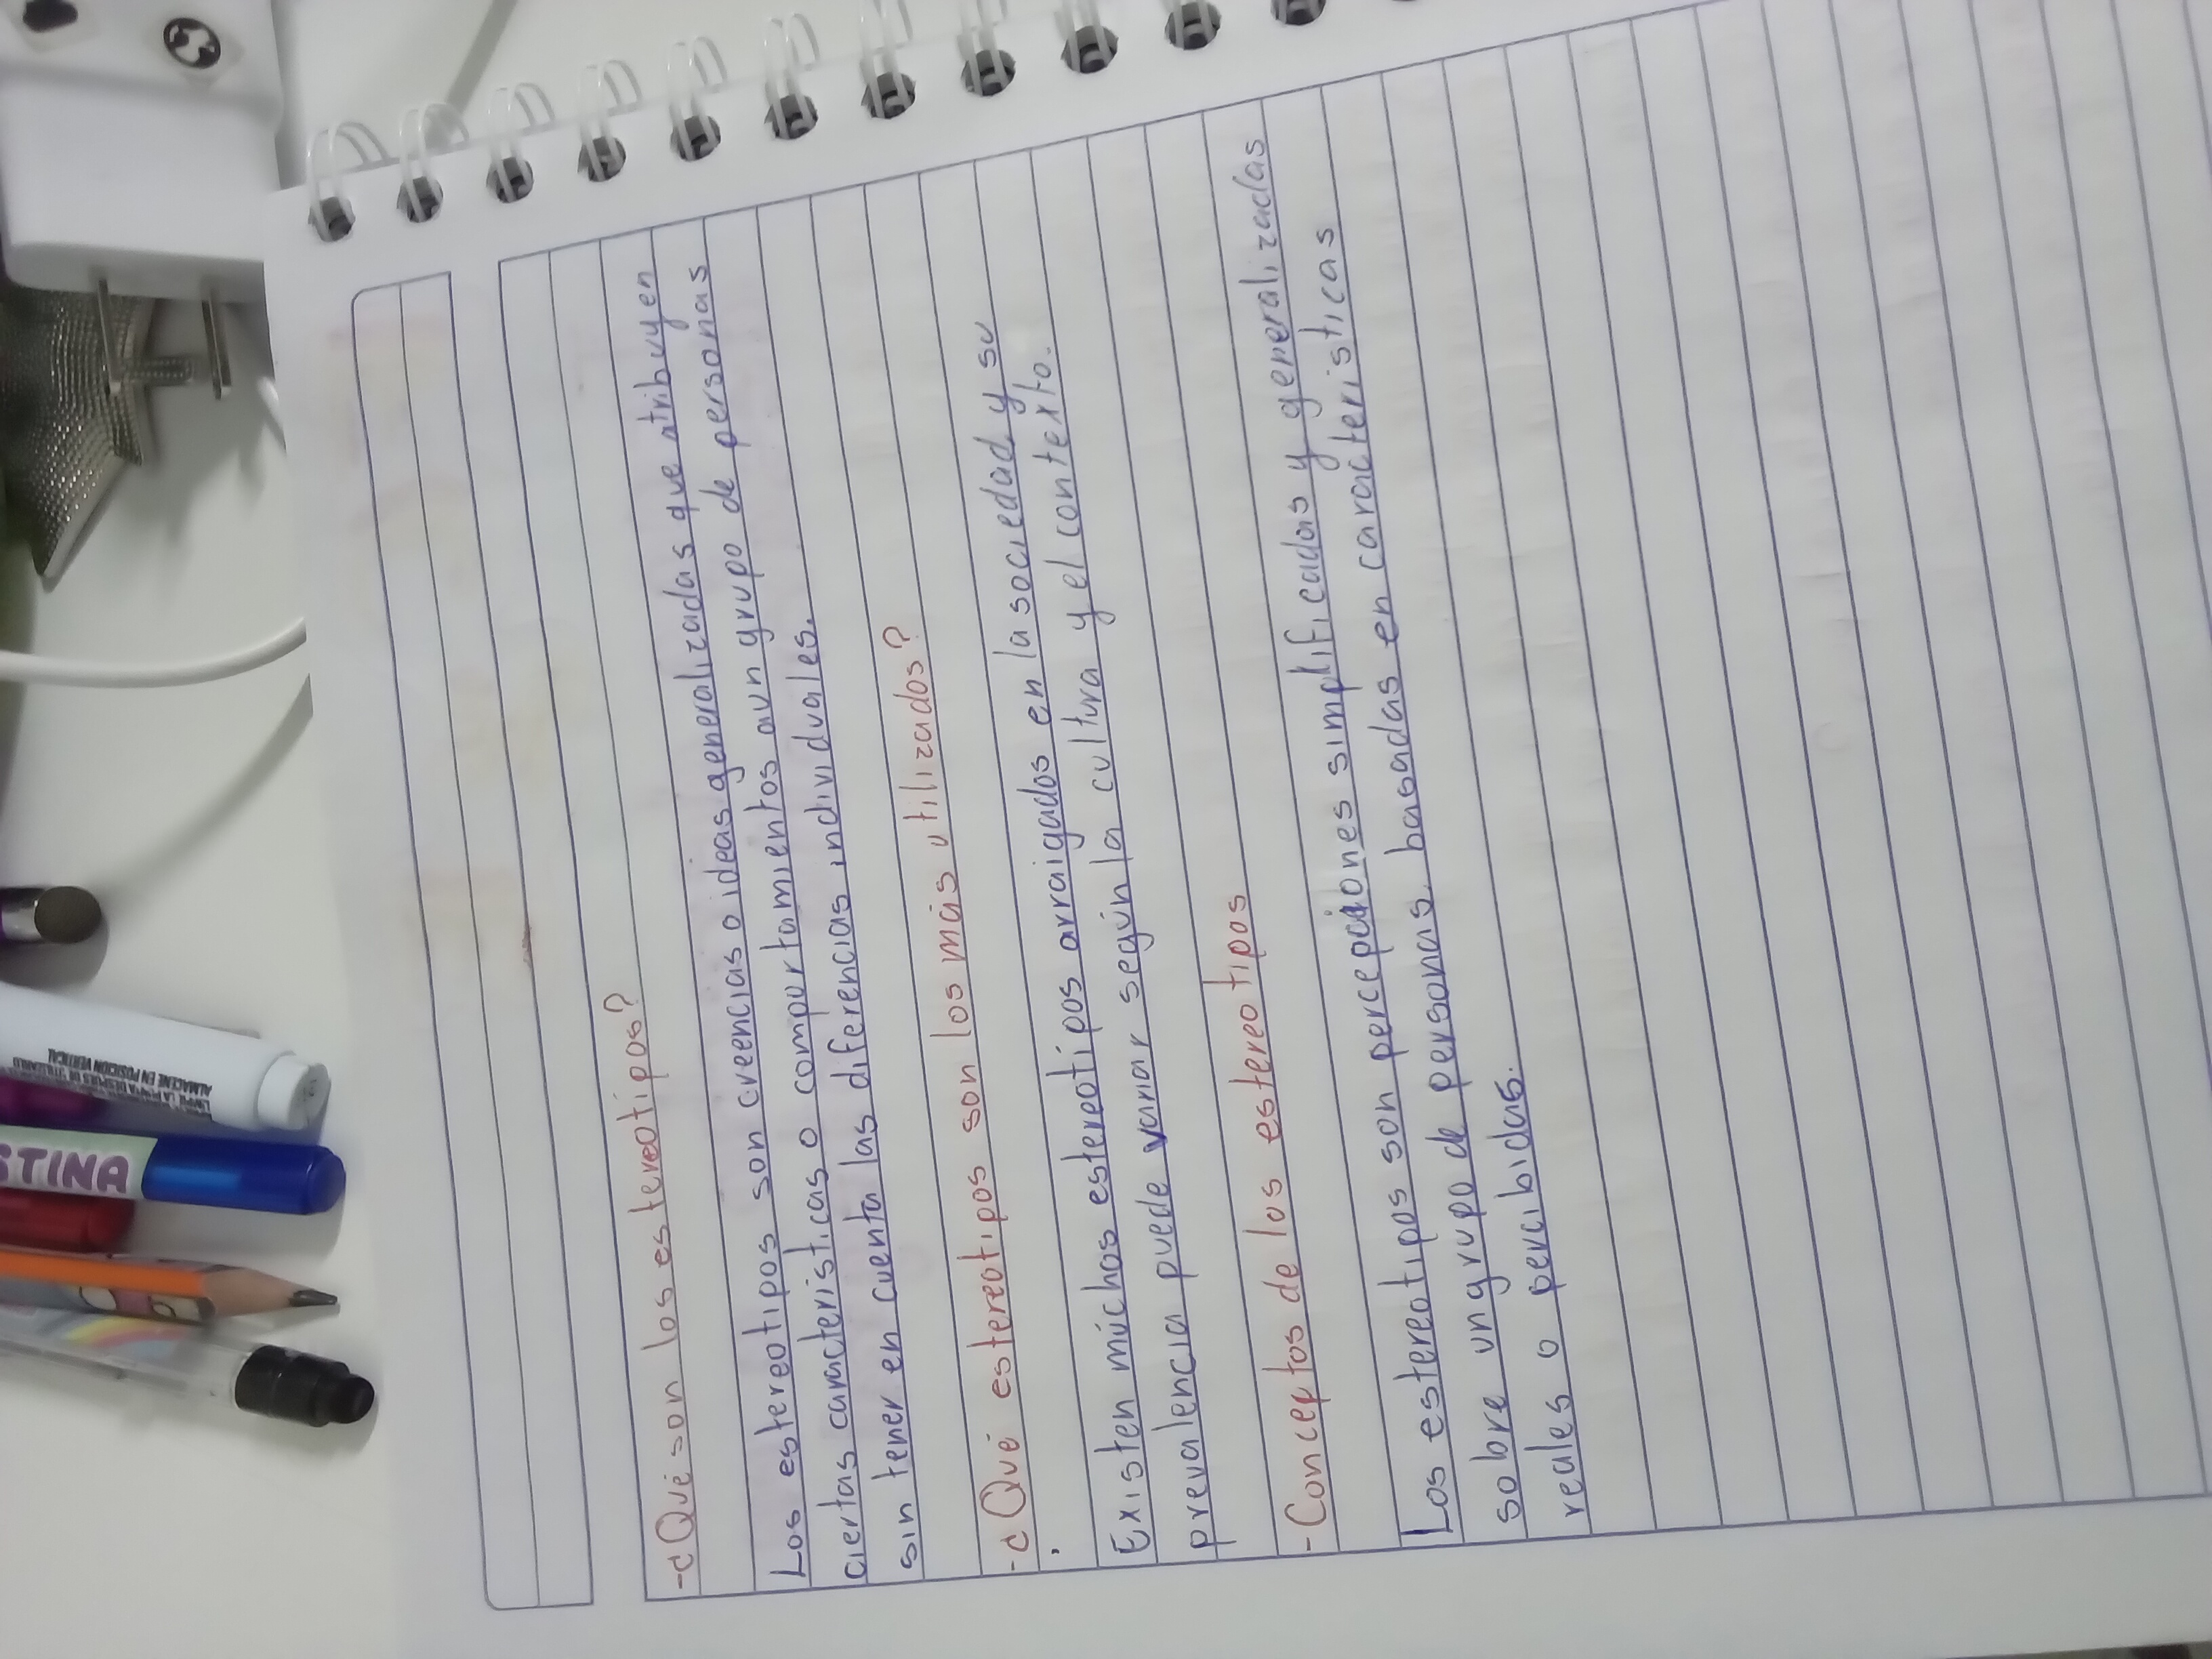 -¿Qué son los estereotipos?
Los estereotipos son creencias o ideas generalizadas que atribuyen
ciertas caracteristicas o comportamientos aun grupo de personas
sin tener en cuenta las diferencias individuales.
-¿Qué estereotipos son los más utilizados?
Existen múchos estereotipos arraigados en la sociedad y su
prevalencia puede variar según la cultura y el contexto.
-Conceptos de los estereotipos
Los estereotipos son percepciones simplificadas y generalizadas
sobre un grupo de personas, basadas en caracteristicas
reales o percibidas.
STINA
ALMACENE EN POSICION VERTICAL